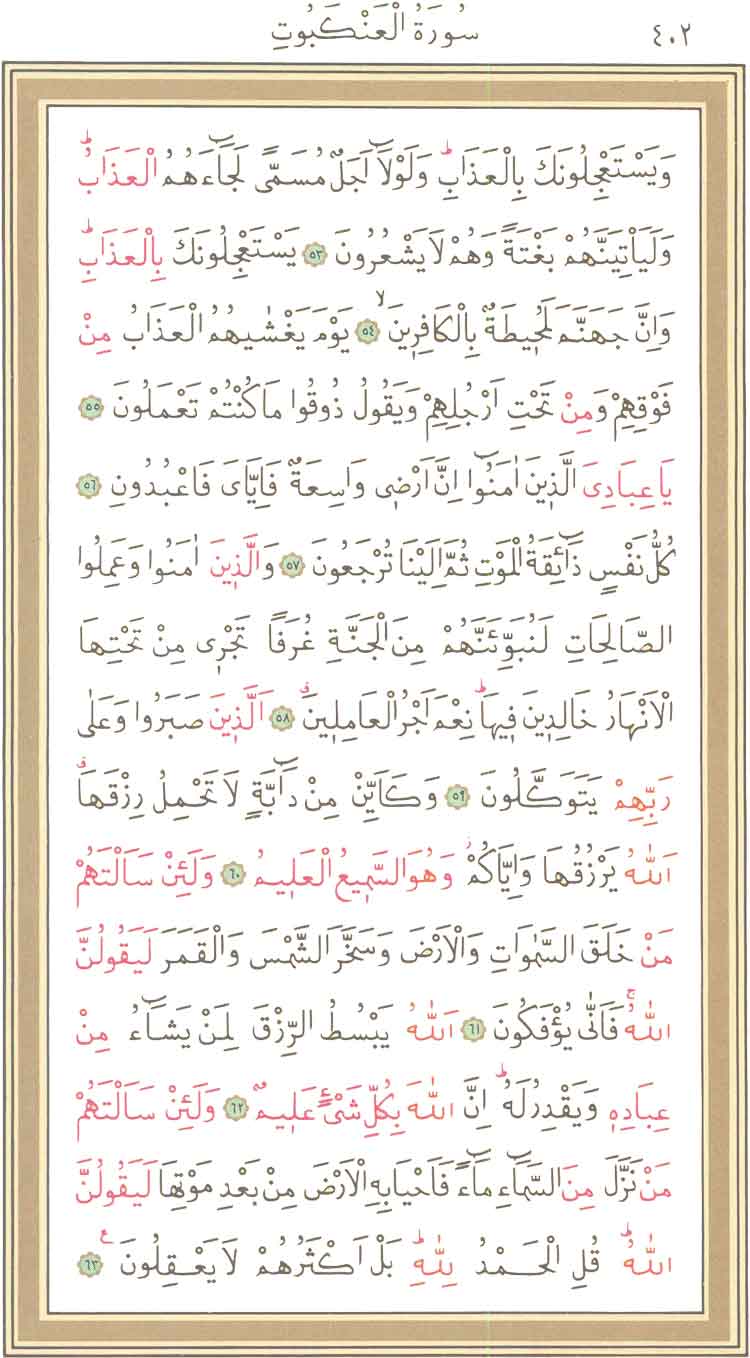 ٤٠٢ سُورَةُ الْعَنْكَبُوتِ
وَيَسْتَعْجِلُونَكَ بِالْعَذَابِۜ وَلَوْلَٓا اَجَلٌ مُسَمًّى لَجَٓاءَهُمُ الْعَذَابُۜ
وَلَيَأْتِيَنَّهُمْ بَغْتَةً وَهُمْ لَا يَشْعُرُونَ ﴿٥٣﴾ يَسْتَعْجِلُونَكَ بِالْعَذَابِۜ
وَاِنَّ جَهَنَّمَ لَمُح۪يطَةٌ بِالْكَافِر۪ينَۙ ﴿٥٤﴾ يَوْمَ يَغْشٰيهُمُ الْعَذَابُ مِنْ
فَوْقِهِمْ وَمِنْ تَحْتِ اَرْجُلِهِمْ وَيَقُولُ ذُوقُوا مَا كُنْتُمْ تَعْمَلُونَ ﴿٥٥﴾
يَا عِبَادِيَ الَّذ۪ينَ اٰمَنُٓوا اِنَّ اَرْض۪ي وَاسِعَةٌ فَاِيَّايَ فَاعْبُدُونِ ﴿٥٦﴾
كُلُّ نَفْسٍ ذَٓائِقَةُ الْمَوْتِ ثُمَّ اِلَيْنَا تُرْجَعُونَ ﴿٥٧﴾ وَالَّذ۪ينَ اٰمَنُوا وَعَمِلُوا
الصَّالِحَاتِ لَنُبَوِّئَنَّهُمْ مِنَ الْجَنَّةِ غُرَفًا تَجْر۪ي مِنْ تَحْتِهَا
الْاَنْهَارُ خَالِد۪ينَ ف۪يهَاۜ نِعْمَ اَجْرُ الْعَامِل۪ينَۗ ﴿٥٨﴾ اَلَّذ۪ينَ صَبَرُوا وَعَلٰى
رَبِّهِمْ يَتَوَكَّلُونَ ﴿٥٩﴾ وَكَاَيِّنْ مِنْ دَٓابَّةٍ لَا تَحْمِلُ رِزْقَهَاۗ
اَللّٰهُ يَرْزُقُهَا وَاِيَّاكُمْۘ وَهُوَ السَّم۪يعُ الْعَل۪يمُ ﴿٦٠﴾ وَلَئِنْ سَاَلْتَهُمْ
مَنْ خَلَقَ السَّمٰوَاتِ وَالْاَرْضَ وَسَخَّرَ الشَّمْسَ وَالْقَمَرَ لَيَقُولُنَّ
اللّٰهُۚ فَاَنّٰى يُؤْفَكُونَ ﴿٦١﴾ اَللّٰهُ يَبْسُطُ الرِّزْقَ لِمَنْ يَشَٓاءُ مِنْ
عِبَادِه۪ وَيَقْدِرُ لَهُۜ اِنَّ اللّٰهَ بِكُلِّ شَيْءٍ عَل۪يمٌ ﴿٦٢﴾ وَلَئِنْ سَاَلْتَهُمْ
مَنْ نَزَّلَ مِنَ السَّمَٓاءِ مَٓاءً فَاَحْيَا بِهِ الْاَرْضَ مِنْ بَعْدِ مَوْتِهَا لَيَقُولُنَّ
اللّٰهُۜ قُلِ الْحَمْدُ لِلّٰهِۜ بَلْ اَكْثَرُهُمْ لَا يَعْقِلُونَ۟ ﴿٦٣﴾